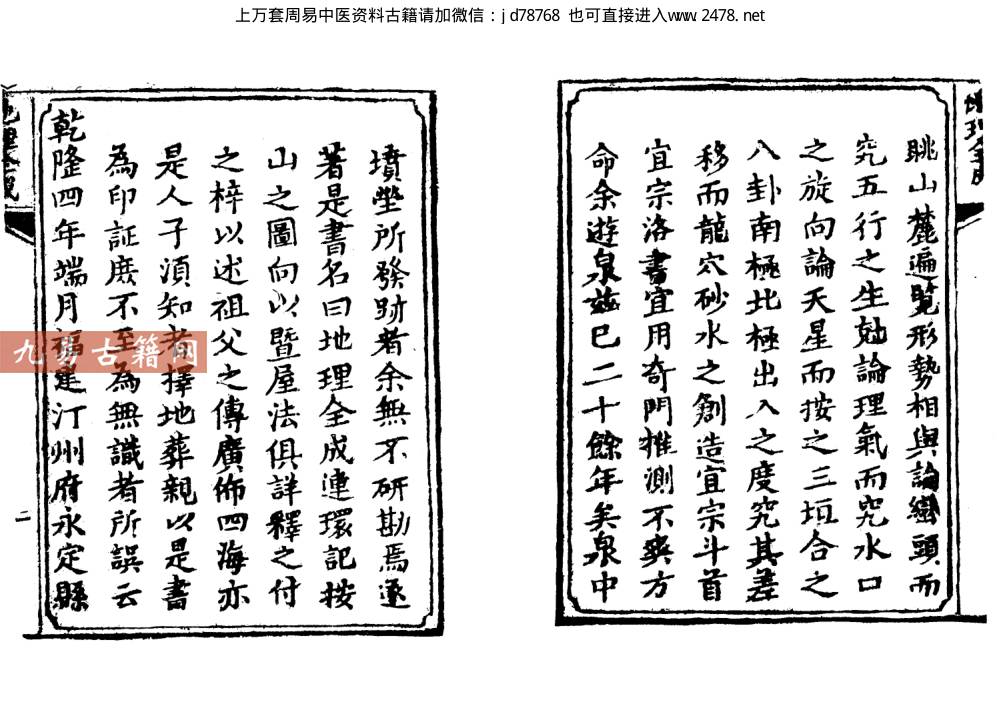 上万套周易中医资料古籍请加微信：jd78768 也可直接进入www.2478.net
眺山麓遍覽形勢相與論巒頭而
究五行之生尅論理氣而究水口
之旋向論天星而按之三垣合之
八卦南極北極出入之度究其差
移而龍穴砂水之創造宜宗斗首
宜宗洛書宜用奇門推測不爽方
命余遊泉茲巳二十餘年矣泉中
墳塋所發跡者余無不研勘焉遂
著是書名曰地理全成連環記按
山之圖向以暨屋法俱詳釋之付
之梓以述祖父之傳廣佈四海亦
是人子湏知者擇地葬親以是書
為印証庻不至為無識者所誤云
乾隆四年端月福建汀州府永定縣
二
九易古籍网